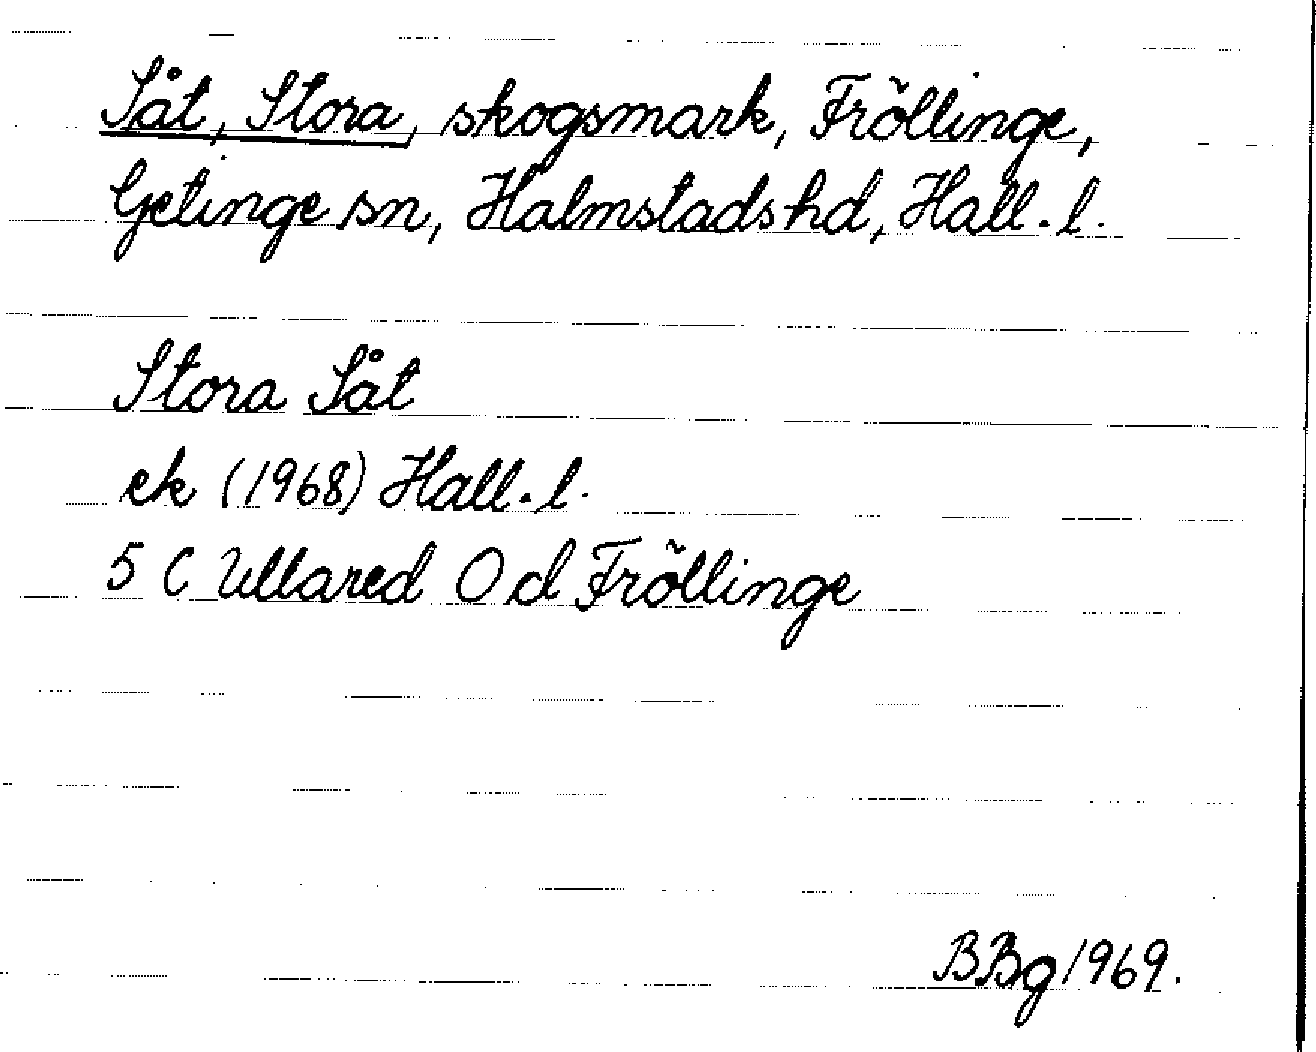 Såt, Stora, skogsmark, Fröllinge,
Getinge sn, Halmstads hd, Hall. l.
Stora Såt
ek (1968) Hall. l.
5 C Ullared 0 d Fröllinge
BBg 1969.